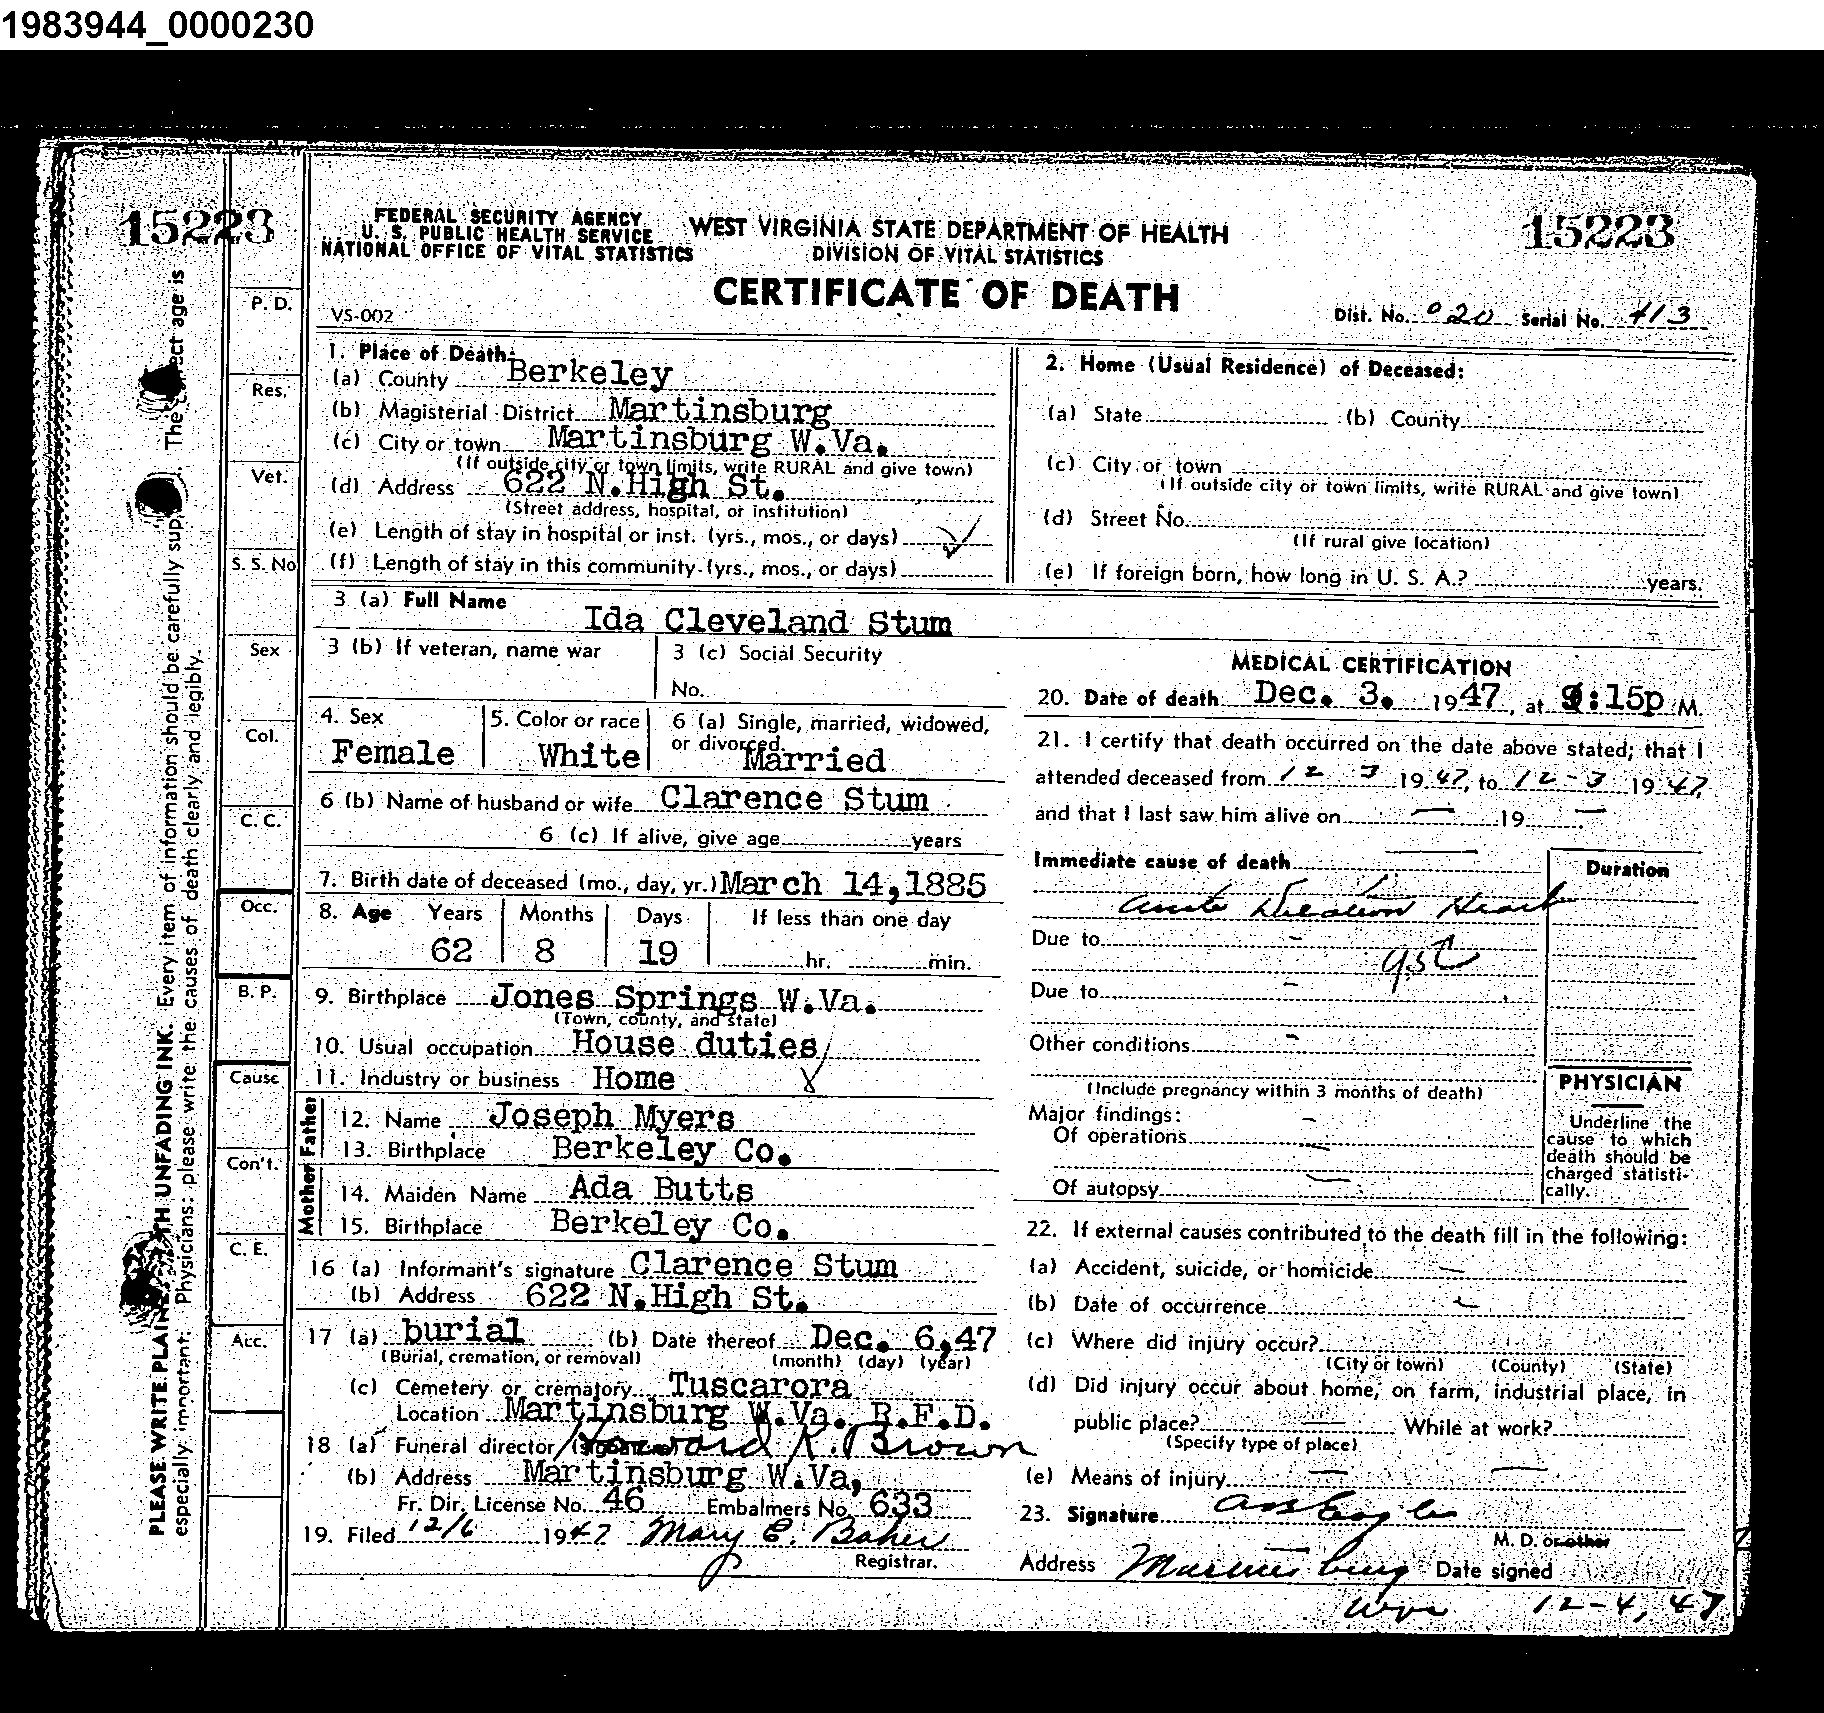 1983944_0000230
15223
FEDERAL SECURITY AGENCY
U. S. PUBLIC HEALTH SERVICE
NATIONAL OFFICE OF VITAL STATISTICS
WEST VIRGINIA STATE DEPARTMENT OF HEALTH
DIVISION OF VITAL STATISTICS
15223
CERTIFICATE OF DEATH
VS-002
Dist. No. 020 Serial No. 413
1. Place of Death:
(a) County Berkeley
(b) Magisterial District Martinsburg
(c) City or town Martinsburg W.Va.
(If outside city or town limits, write RURAL and give town)
(d) Address 622 N.High St.
(Street address, hospital, or institution)
(e) Length of stay in hospital or inst. (yrs., mos., or days)
(f) Length of stay in this community (yrs., mos., or days)
2. Home (Usual Residence) of Deceased:
(a) State (b) County
(c) City or town
(If outside city or town limits, write RURAL and give town)
(d) Street No.
(If rural give location)
(e) If foreign born, how long in U. S. A.? years.
3 (a) Full Name Ida Cleveland Stum
3 (b) If veteran, name war
3 (c) Social Security
No.
4. Sex
Female
5. Color or race
White
6 (a) Single, married, widowed,
or divorced. Married
6 (b) Name of husband or wife Clarence Stum
6 (c) If alive, give age years
7. Birth date of deceased (mo., day, yr.) March 14,1885
8. Age Years Months Days If less than one day
62 8 19 hr. min.
9. Birthplace Jones Springs W.Va.
(Town, county, and state)
10. Usual occupation House duties
11. Industry or business Home
Father
12. Name Joseph Myers
13. Birthplace Berkeley Co.
Mother
14. Maiden Name Ada Butts
15. Birthplace Berkeley Co.
16 (a) Informant's signature Clarence Stum
(b) Address 622 N.High St.
17 (a) burial (b) Date thereof Dec. 6,47
(Burial, cremation, or removal) (month) (day) (year)
(c) Cemetery or crematory Tuscarora
Location Martinsburg W.Va. R.F.D.
18 (a) Funeral director (signature) Howard K. Brown
(b) Address Martinsburg W.Va,
Fr. Dir. License No. 46 Embalmers No. 633
19. Filed 12/6 1947 Mary E. Baker
Registrar.
MEDICAL CERTIFICATION
20. Date of death Dec. 3. 1947, at 9:15p M
21. I certify that death occurred on the date above stated; that I
attended deceased from 12 3 1947, to 12-3 1947,
and that I last saw him alive on — 19 —
Immediate cause of death
Duration
Acute Dilation Heart
Due to -
Due to -
Other conditions -
(Include pregnancy within 3 months of death)
Major findings:
Of operations -
Of autopsy —
PHYSICIAN
Underline the
cause to which
death should be
charged statisti-
cally.
22. If external causes contributed to the death fill in the following:
(a) Accident, suicide, or homicide —
(b) Date of occurrence
(c) Where did injury occur?
(City or town) (County) (State)
(d) Did injury occur about home, on farm, industrial place, in
public place? — While at work?
(Specify type of place)
(e) Means of injury —
23. Signature
M. D. or other
Address Martinsburg Date signed
WVa 12-4,47
P. D.
Res.
Vet.
S. S. No
Sex
Col.
C. C.
Occ.
B. P.
Cause
Con't.
C. E.
Acc.
PLEASE WRITE PLAINLY WITH UNFADING INK. Every item of information should be carefully sup The correct age is
especially important. Physicians: please write the causes of death clearly and legibly.